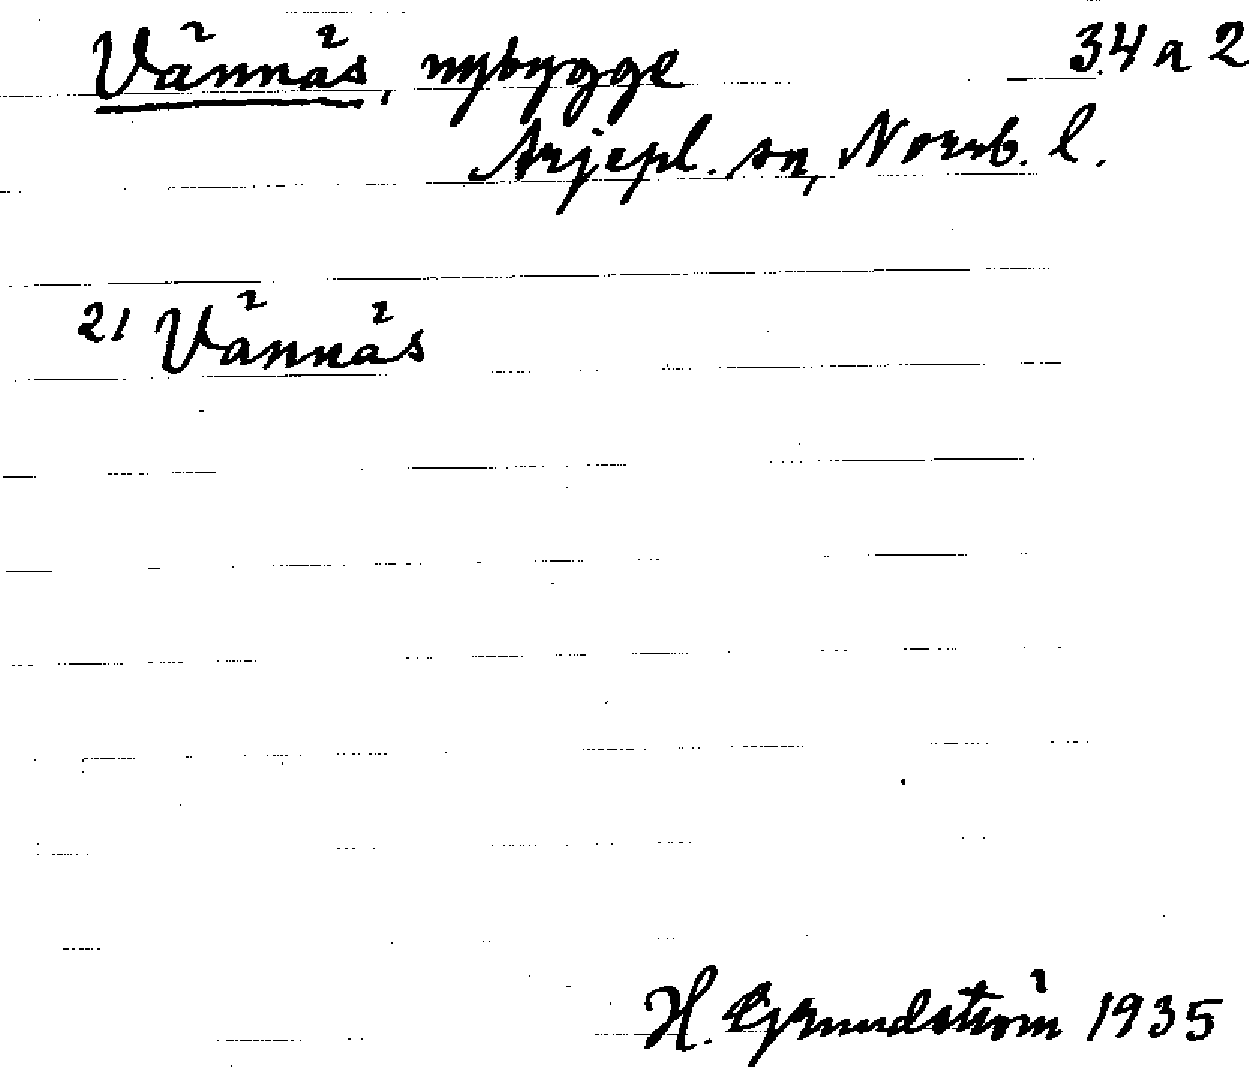 Vännäs, nybygge 34 a 2
Arjepl. sn, Norrb. l.
21 Vännäs
H. Grundström 1935